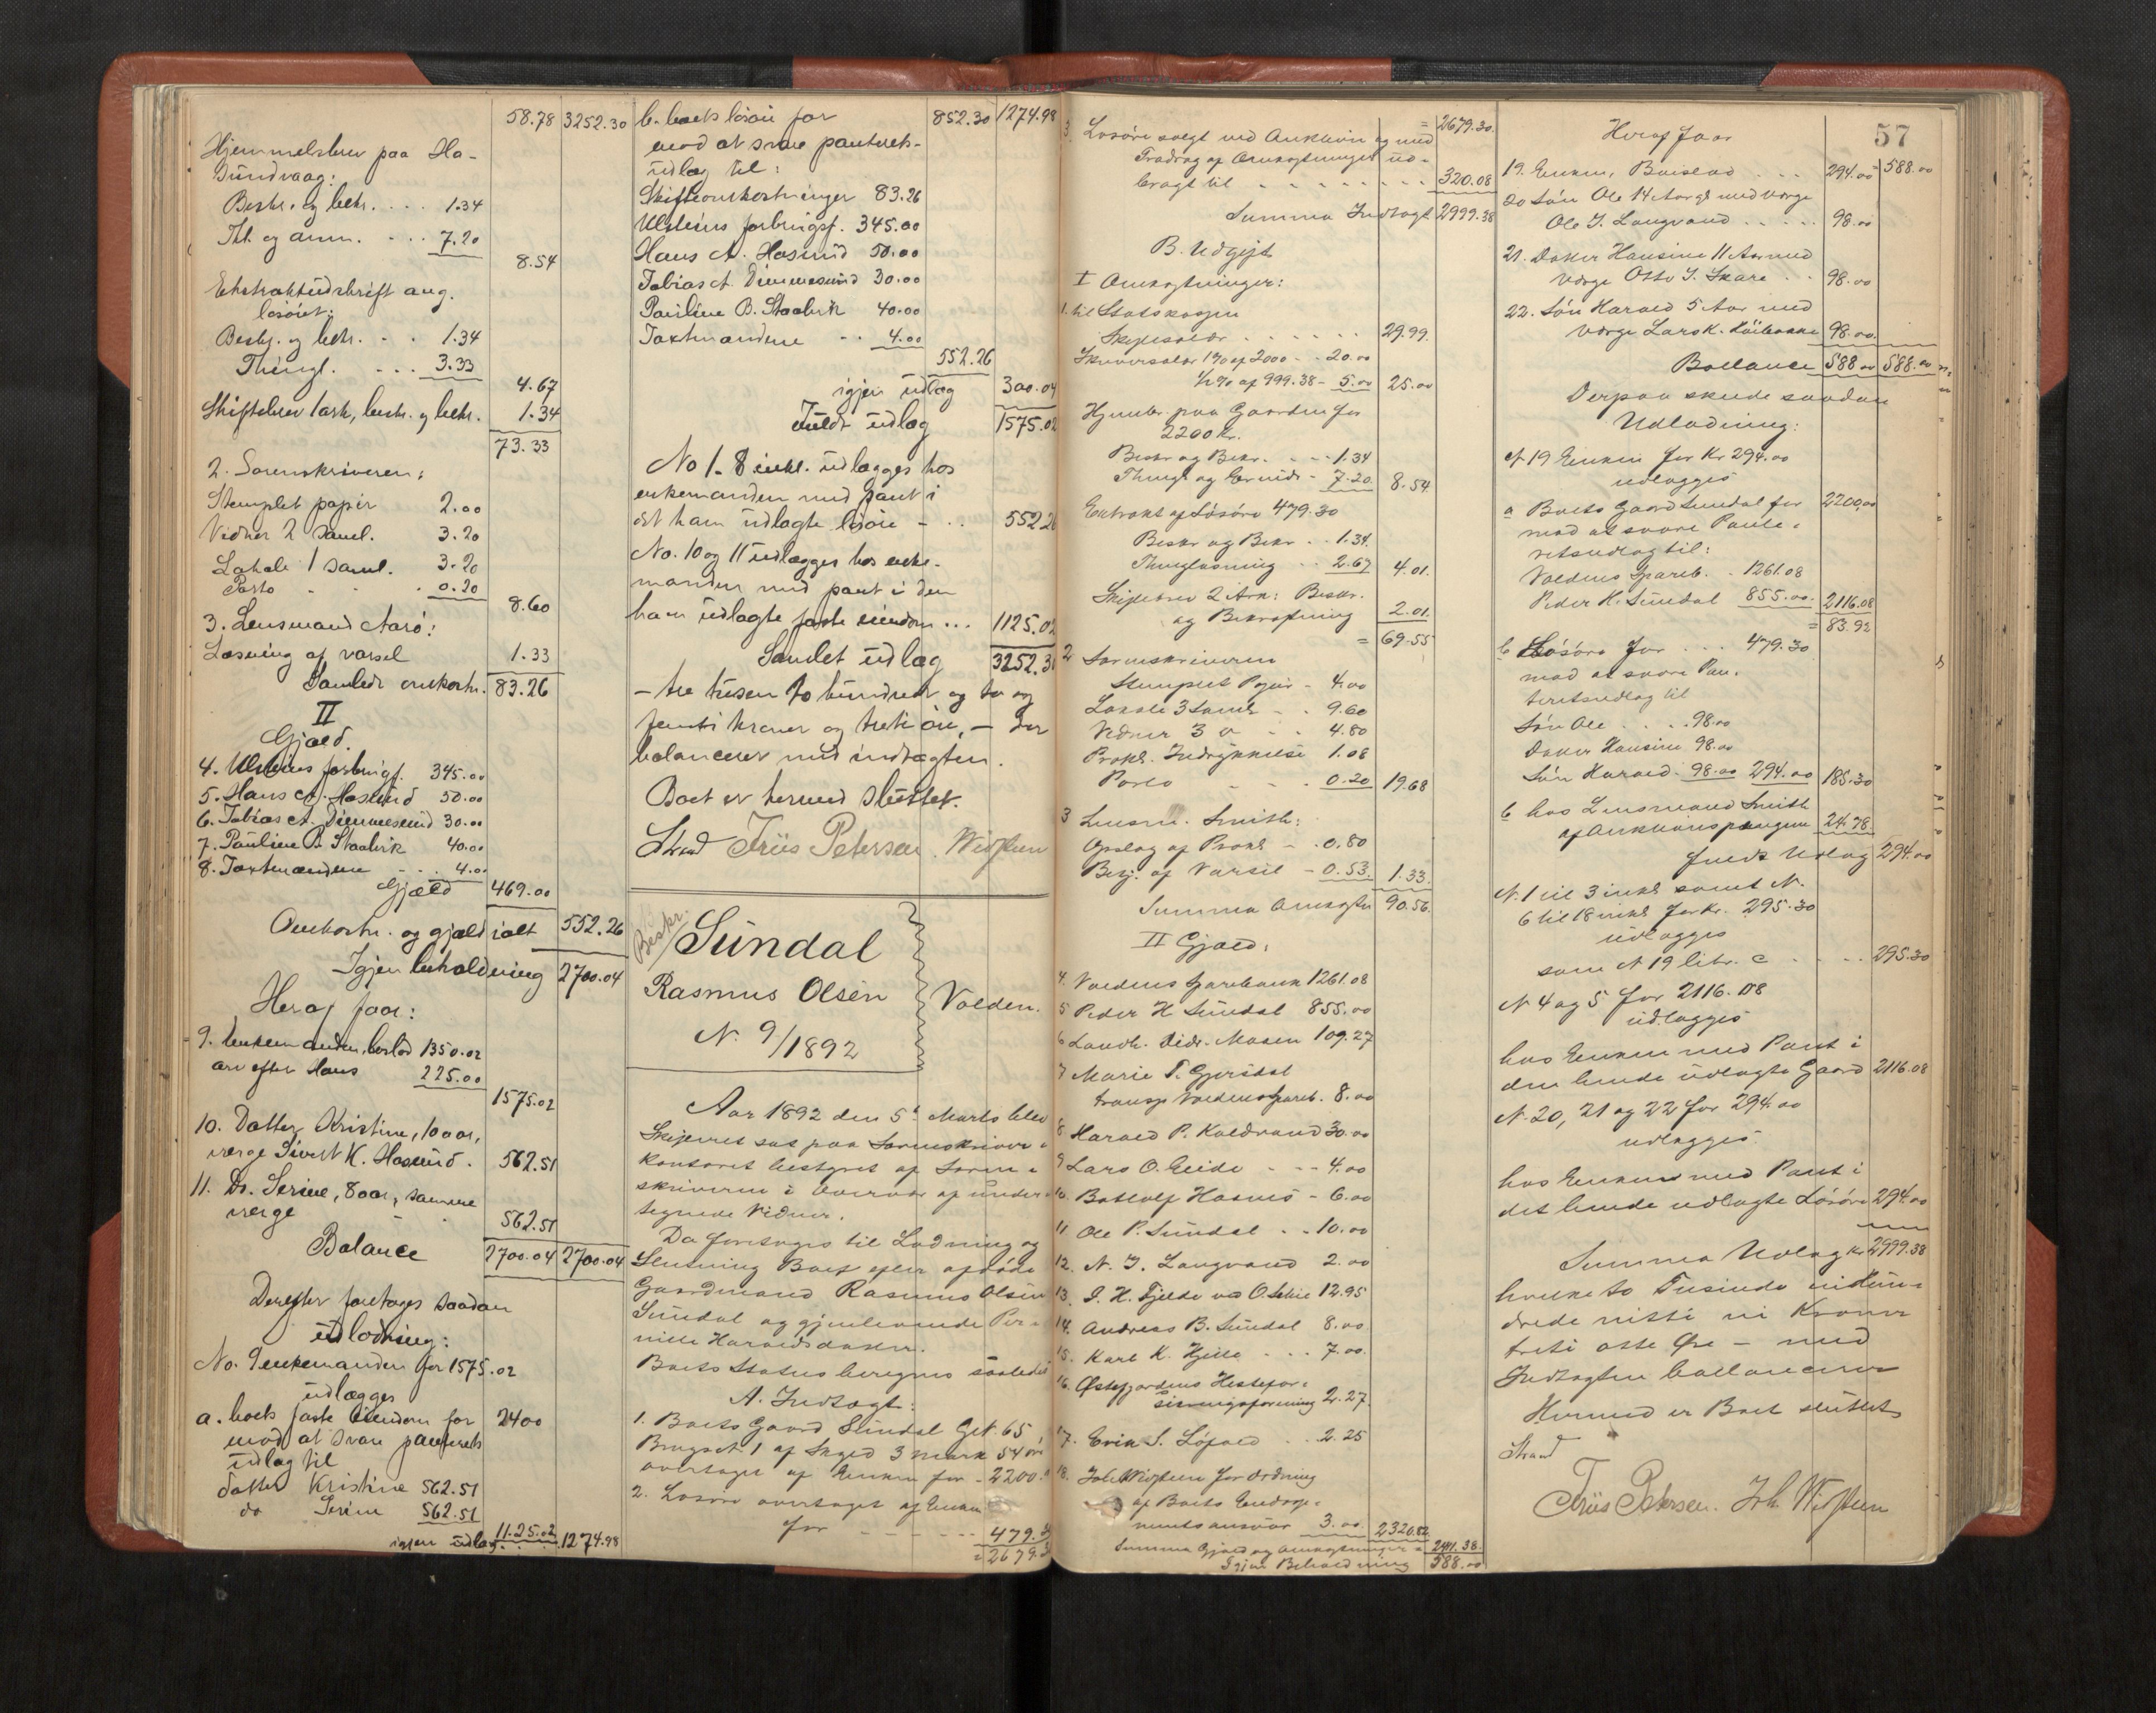 58.78 3252.30
Hjemmelsbrev paa Ha-
sundvaag:
Beskr. og bekr. . . . 1.34
Thl. og anm. . . . 7.20
8.54
Ekstraktudskrift ang.
løsøiet:
Beskr. og bekr. . . 1.34
Thingl. . . . 3.33
4.67
Skiftebrev 1 ark, beskr. og bekr. 1.34
73.33
2. Sorenskriveren:
Stemplet papir 2.00
Vidner 2 saml. 3.20
Lokale 1 saml. 3.20
Porto . . . 0.20
8.60
3. Lensmand Aarø:
Læsning af varsel 1.33
Samlede omkostn. 83.26
II
Gjæld.
4. Ulsteins forbrugsf. 345.00
5. Hans A. Hasund 50.00
6. Tobias A. Dimmesund 30.00
7. Pauline B. Staalvik 40.00
8. Taxtmændene . . . 4.00
Gjæld 469.00
Omkostn. og gjæld ialt 552.26
Igjen beholdning 2700.04
Heraf faar:
9. Enkemanden, boslod 1350.02
arv efter Hans 225.00
1575.02
10. Datter Kristine, 10 aar,
verge Sivert K. Hasund. 562.51
11. Do. Serine, 8 aar, samme
verge 562.51
Balance 2700.04 2700.04
Derefter foretages saadan
udlodning:
No. 9 enkemanden for 1575.02
udlægges
a. boets faste eiendom for 2400
mod at svare panterets
udlæg til
datter Kristine 562.51
do Serine 562.51
11.25.02
igjen udlæg . . . 1274.98
b. boets løsøie for 852.30 1274.98
mod at svare panterets-
udlæg til:
Skifteomkostninger 83.26
Ulsteins forbrugsf. 345.00
Hans A. Hasund 50.00
Tobias A. Dimmesund 30.00
Pauline B. Staalvik 40.00
Taxtmændene . . 4.00
552.26
igjen udlæg 300.04
Fuldt udlæg 1575.02
No 1-8 inkl. udlægges hos
enkemanden med pant i
det ham udlagte løsøie - . . 552.26
No. 10 og 11 udlægges hos enke-
manden med pant i den
ham udlagte faste eiendom . . . 1125.02
Samlet udlæg 3252.30
- tre tusen to hundrede og to og
femti kroner og treti øre, - der
balancerer med indtægten.
Boet er hermed sluttet.
Strand Friis Petersen. Widsteen
Beskr.
Sundal
Rasmus Olsen
N. 9/1892
Volden.
Aar 1892 den 5t Marts blev
Skifteret sat paa Sorenskriver-
kontoret bestyret af Soren-
skriveren i Overvær af under-
tegnede Vidner.
Da foretoges til Lodning og
Slutning Boet efter afdøde
Gaardmand Rasmus Olsen
Sundal og gjenlevende Per-
nille Haraldsdatter.
Boets Status beregnes saaledes
A. Indtægt:
1. Boets Gaard Sundal G.N. 65,
Brugsn. 1 af Skyld 3 mark 54 øre
overtaget af Enken for - 2200.
2. Løsøre overtaget af Enken
for - - - - - - 479.30
= 2679.30
= 2679.30
3. Løsøre solgt ved Auktion og med
Fradrag af Omkostninger ud-
bragt til - - - - - - - - 320.08
Summa Indtægt 2999.38
B. Udgift
I Omkostninger:
1. til Statskassen
Skiftesalær . . . . . . 29.99
Skriversalær 1% af 2000 - - 20.00
1/2 % af 999.38 - 5.00 25.00
Hjembr. paa Gaarden for
2200 kr.
Beskr og Bekr. - - - 1.34
Thingl og Grund - 7.20 8.54
Extrakt af Løsøre 479.30
Beskr og Bekr . . 1.34.
Thinglæsning . . 2.67 4.01.
Skiftebrev 2 Ark: Beskr.
og Bekræftning 2.01.
= 69.55
2 Sorenskriveren
Stemplet Papir - 4.00
Lokale 3 Saml - . 9.60
Vidner 3 " - - 4.80
Prokl. Indrykkelse 1.08
Porto - - . 0.20 19.68
3 Lensm. Smith:
Opslag af Prokl - .0.80
Besj. af Varsel - 0.53. 1.33.
Summa Omkostn 90.56.
II Gjæld:
4. Voldens Sparebank 1261.08
5 Peder H Sundal 855.00
6 Landh. Didr. Maseu 109.27
7 Marie T. Gjersdal
transp Voldens Spareb. 8.00
8 Harald P. Kaldvand 30.00
9 Lars O. Eide - - - 4.00
10. Botholf Hasnes - 6.00
11 Ole P. Sundal . . . 10.00
12. N. J. Langvand 2.00
13. I. H. Fjelde ved O. Selie 12.95
14. Andreas B. Sundal 8.00
15. Karl K. Hjelle . . . 7.00.
16. Østefjordens Hestefor-
sikringsforening 2.27.
17. Erik S. Løfald . . 2.25
18. Joh. Widsteen for Ordning
af Boets
3.00. 2320.82
Summa Gjæld og Omkostninger = 2411.38.
Igjen Beholdning 588.00
57
Heraf faar
19. Enken, Boislod . . . 294.00 588.00
20 Søn Ole 14 Aar gl med Verge
Ole J. Langvand . . . . . 98.00
21. Datter Hansine 11 Aar med
Verge Otto J. Skare . . . 98.00
22. Søn Harald 5 Aar med
Verge Lars K. 98.00.
Ballance 588.00 588.00
Derpaa skede saadan
Udlodning:
N. 19 Enken for Kr 294.00
udlægges
a Boets Gaard Sundal for 2200,00
mod at svare Pante-
retsudlæg til:
Voldens Spareb. . 1261.08
Peder H. Sundal 855.00. 2116.08
= 83.92
b Løsøre for . . . 479.30
mod at svare Pan-
teretsudlæg til
Søn Ole . . . . 98.00
Datter Hansine 98.00
Søn Harald. 98.00 294.00 185.30
c hos Lensmand Smith
af Auktionspengene 24.78
fuldt Udlæg 294.00
N. 1 til 3 inkl samt N.
6 til 18 inkl for kr. 295.30
udlægges
som N 19 litr. c - . - . . 295.30
N 4 og 5 for 2116.08
udlægges
hos Enken med Pant i
den hende udlagte Gaard 2116.08
N. 20, 21 og 22 for 294.00
udlægges.
hos Enken med Pant i
det hende udlagte Løsøre 294.00
Summa Udlæg kr 2999.38
hvilke to Tusinde nihun-
drede nitti ni Kroner
treti otte Øre - med
Indtægten ballancerer
Hermed er Boet sluttet
Strand
Friis Petersen. Joh. Widsteen